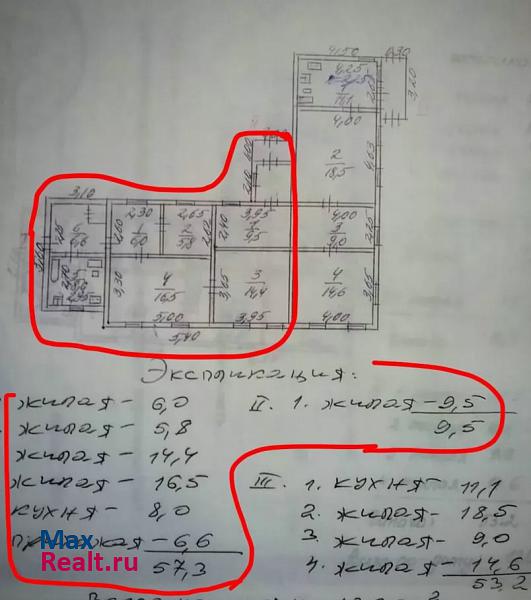 4,50 0,30
4,25
1
11,1
3,20
4,00
2
18,5
4,03
3,10
2,30 2,65 3,95 4,00
6
6,6
1
6,0
2
5,8
1
9,5
3
9,0
2,25
3,30
4
16,5
3,65
3
14,4
4
14,6
3,65
5,00 3,95 4,00
5,40
Экспликация:
жилая - 6,0 II. 1. жилая - 9,5
жилая - 5,8 9,5
жилая - 14,4
жилая - 16,5 III. 1. кухня - 11,1
кухня - 8,0 2. жилая - 18,5
- 6,6 3. жилая - 9,0
57,3 4. жилая - 14,6
53,2
Max
Realt.ru